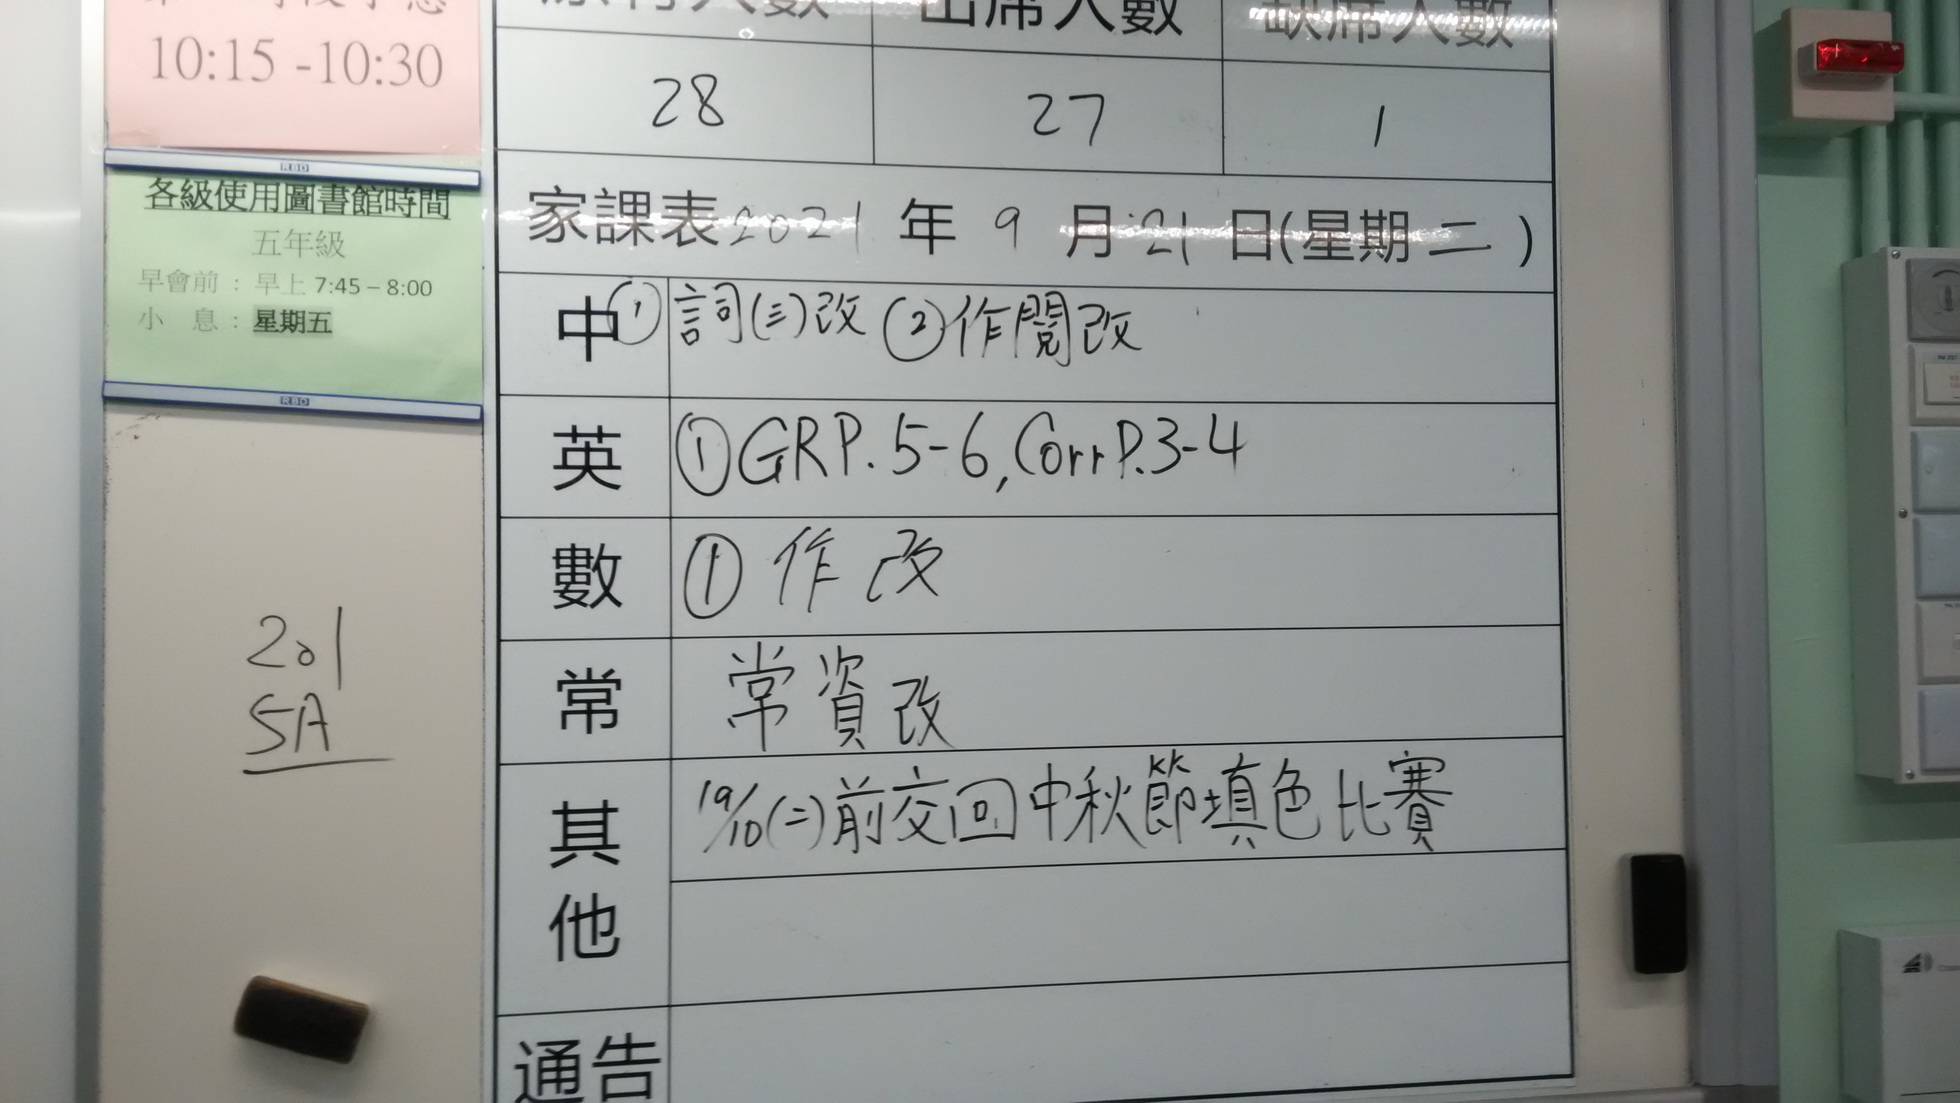 10:15 -10:30
各級使用圖書館時間
五年級
早會前：早上 7:45 – 8:00
小 息：星期五
201
5A
原有人數 出席人數 缺席人數
28 27 1
家課表 2021 年 9 月 21 日(星期二)
中 ① 詞(三)改 ② 作閱改
英 ① GRP. 5-6, Corr P.3-4
數 ① 作改
常 常資改
其他 19/10(二)前交回中秋節填色比賽
通告